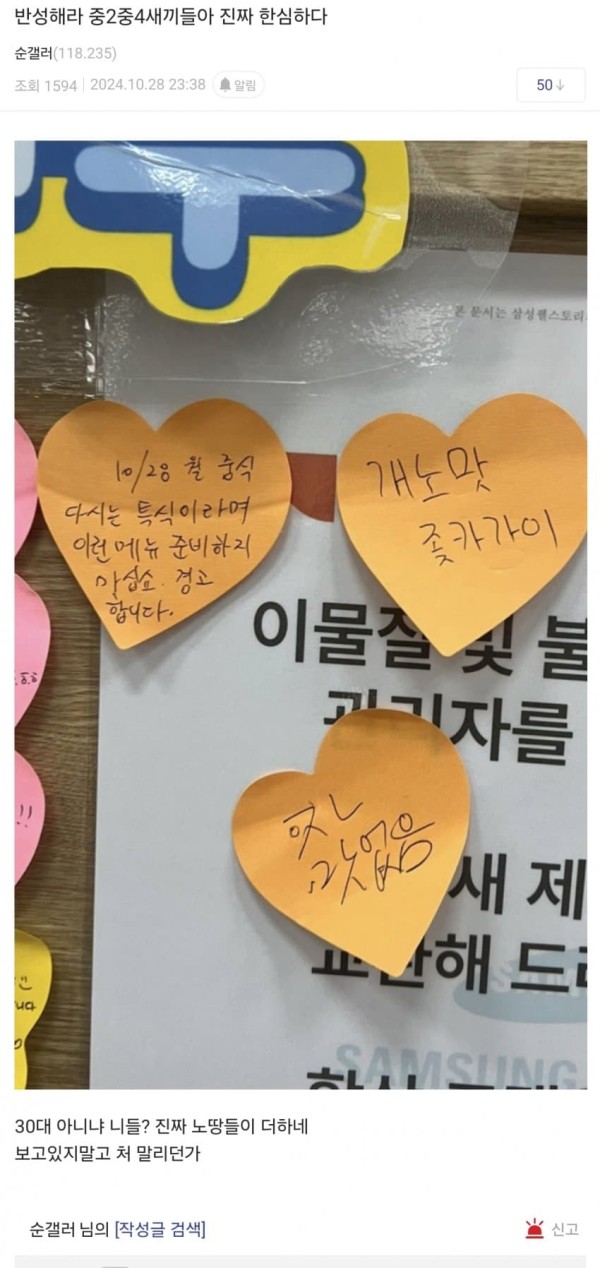 반성해라 중2중4새끼들아 진짜 한심하다
순갤러(118.235)
조회 1594 | 2024.10.28 23:38 알림
50↓
본 문서는 삼성웰스토리
10/28 월 중식
다시는 특식이라며
이런메뉴 준비하지
마십쇼. 경고
합니다.
개노맛
좆카가이
이물질 및 불
관리자를
맛없음
새 제
교환해 드
SAMSUNG
30대 아니냐 니들? 진짜 노땅들이 더하네
보고있지말고 처 말리던가
순갤러 님의 [작성글 검색]
신고